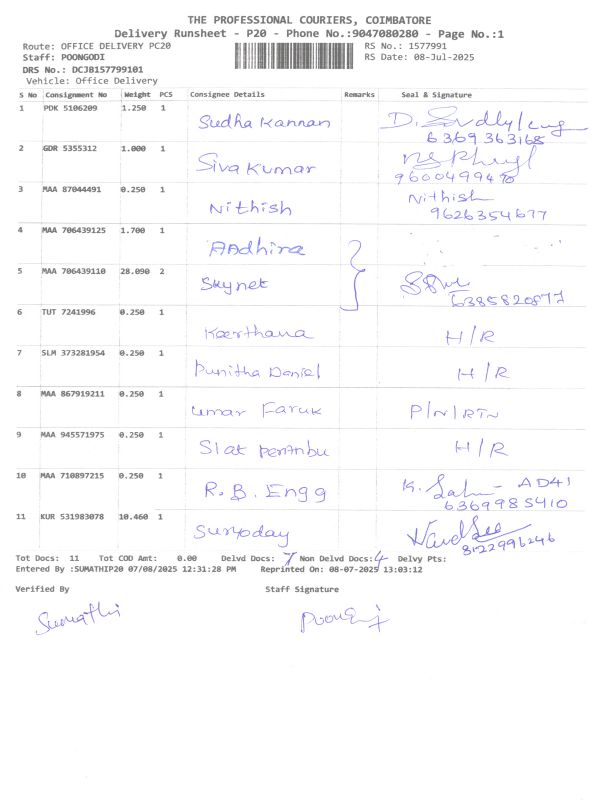 THE PROFESSIONAL COURIERS, COIMBATORE
Delivery Runsheet - P20 - Phone No.:9047080280 - Page No.:1
Route: OFFICE DELIVERY PC20 RS No.: 1577991
Staff: POONGODI RS Date: 08-Jul-2025
DRS No.: DCJB157799101
Vehicle: Office Delivery
S No Consignment No Weight PCS Consignee Details Remarks Seal & Signature
1 PDK 5106209 1.250 1 Sudha Kannan D.
6369363168
2 GDR 5355312 1.000 1 Siva Kumar
9600499490
3 MAA 87044491 0.250 1 Nithish Nithish
9626354677
4 MAA 706439125 1.700 1 Aadhira
5 MAA 706439110 28.090 2 Skynet
6385820877
6 TUT 7241996 0.250 1 Keerthana H/R
7 SLM 373281954 0.250 1 Punitha Daniel H/R
8 MAA 867919211 0.250 1 umar Faruk P/N/RTN
9 MAA 945571975 0.250 1 H/R
10 MAA 710897215 0.250 1 R.B. Engg K. - AD41
6369985410
11 KUR 531983078 10.460 1 Suryoday
8122996246
Tot Docs: 11 Tot COD Amt: 0.00 Delvd Docs: 7 Non Delvd Docs: 4 Delvy Pts:
Entered By :SUMATHIP20 07/08/2025 12:31:28 PM Reprinted On: 08-07-2025 13:03:12
Verified By Staff Signature
Sumathi